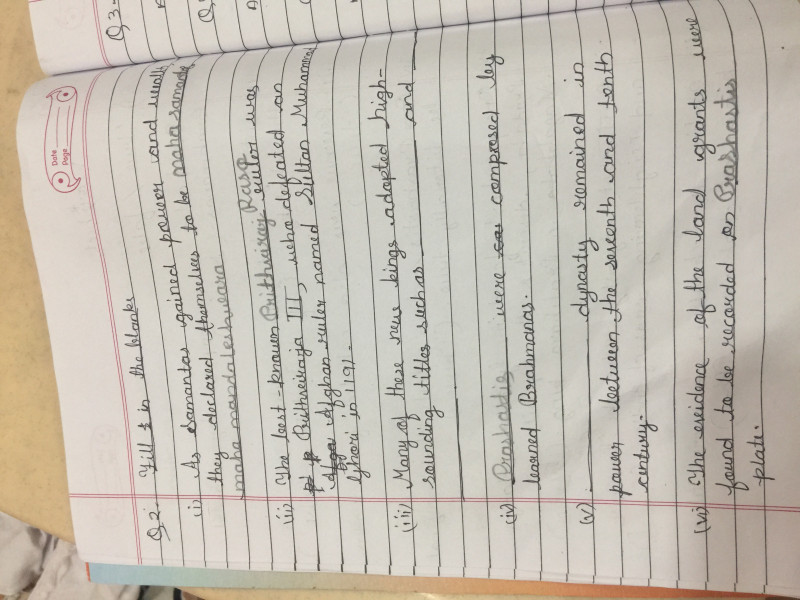 Q.3.
Date
Page
Q.2. Fill in the blanks
(i) As Samantas gained power and wealth
they declared themselves to be maha samanta,
maha mandaleshwara
(ii) The best-known Prithviraj Rasp ruler was
Prithviraja III, who defeated an
Afghan ruler named Sultan Muhammad
Ghori in 1191.
(iii) Many of these new kings adapted high-
sounding titles such as ______ and ______
______
(iv) Prashastis were composed by
learned Brahmanas.
(v) ______ dynasty remained in
power between the seventh and tenth
century.
(vi) The evidence of the land grants were
found to be recorded on Prashastis
plate.